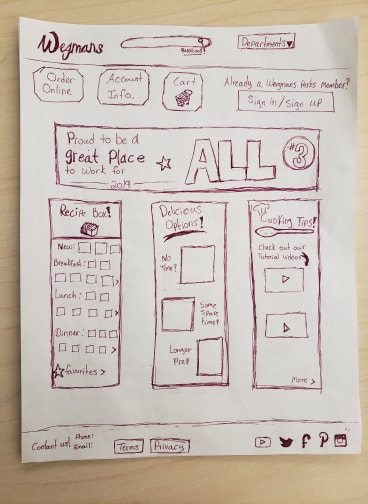 Wegmans
Departments
Order
Online
Account
Info.
Cart
Already a Wegmans Perks Member?
Sign in/Sign up
Proud to be a
great Place
to work for
2019
ALL
#3
Recipe Box!
New:
Breakfast:
Lunch:
Dinner:
favorites >
Delicious
Options!
No
Time?
Some
Spare
time?
Longer
Prep?
Cooking Tips!
Check out our
Tutorial Videos
More >
Contact us!
Phone:
Email:
Terms
Privacy